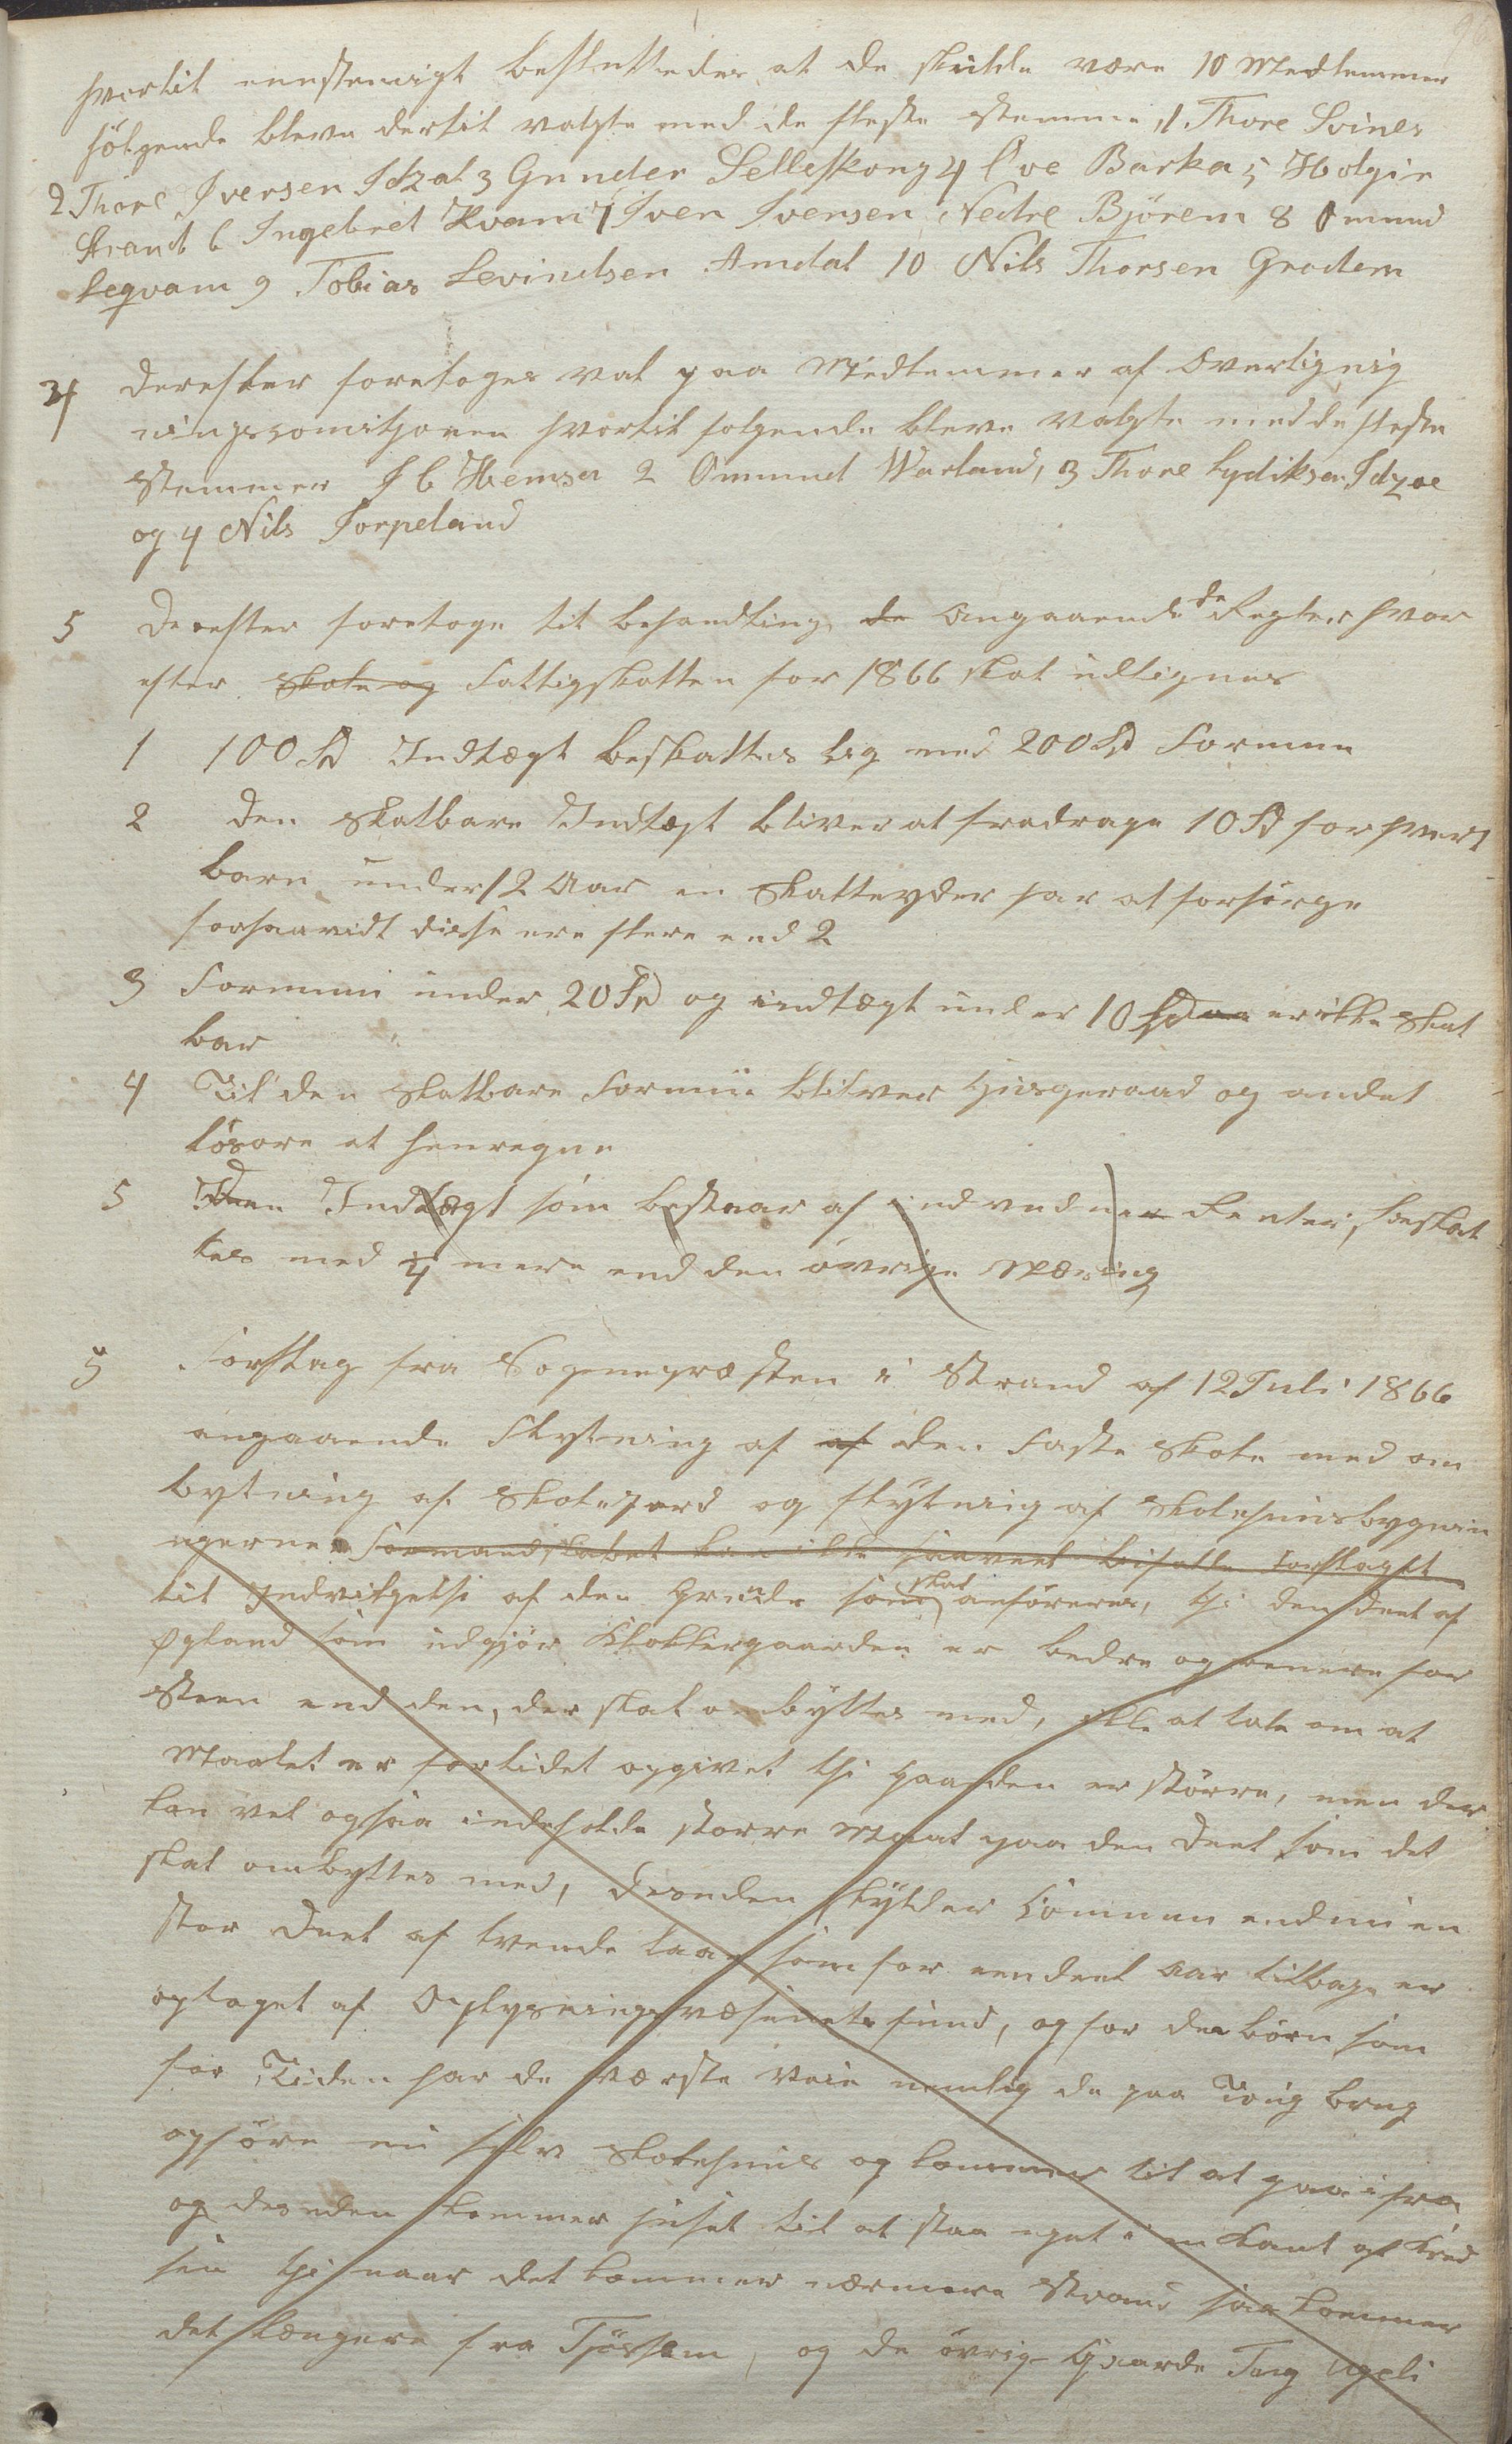 96
hvortil eenstemigt besluttedes at de skulde være 10 Medlemmer
følgende bleve dertil valgte med de fleste stemme, 1 Thore Svines
2 Thore Iversen Idzal 3 Gunder Selleskong 4 Ove Barka 5 Holgir
Strand 6 Ingebret Kvam 7 Iven Ivensen Nedre Bjørem 8 Omund
Leqvam 9 Tobias Levindsen Amdal 10 Nils Thorsen Grodem
4 Derefter foretoges val paa Medlemmer af Overlignig
ningscomitjonen hvortil følgende bleve valgte med de fleste
Stemmer I C Hemsen 2 Ommund Warland, 3 Thore Lydiksen Idzøe
og 4 Nils Torpeland
5 Derefter foretoges til behandling de Angaaende de Regler hvor
efter Skole og Fattigskatten for 1866 skal udlignes
1 100 Spd Indtægt beskattes lig med 200 Spd Formue
2 Den skatbare Indtægt bliver at fradrage 10 Spd for hvert
barn under 12 Aar en Skatteyder har at forsørge
forsaavidt disse ere flere end 2
3 Formue under 20 Spd og indtægt under 10 Spd er ikke Skat
bar
4 Til den skatbare Formue bliver Husgeraad og andet
løsøre at henregne
5 Den Indtægt som bestaar af Renter, beskat
tes med 4 mere end den øvrige Næring
5 Forslag fra Sognepræsten i Strand af 12 Juli 1866
angaaende Flytning af af den Faste Skole med om
bytning af Skolejord og flytnig af Skolehuusbygnin
gerne Formandskabet kan ikke bifalde Forslaget
til Indvilgelse af den Grunde som skal anføreres, thi den deel af
Øgland som udgjør Klokkergaarden er bedre og renere for
Steen end den, der skal ombyttes med, ikke at tale om at
Maalet er forlidet opgivet thi Gaarden er større, men der
kan vel ogsaa indeholde større Maal paa den Deel som det
skal ombyttes med, desuden skylder Commun endnu en
stor Deel af tvende laan som for eendeel Aar tilbage er
optaget af Oplysningsvæsenets fund, og for de børn som
for Tiden har de værste Veie nemlig de paa Toug brug
opføre nu selv Skolehuus og kommer til at gaa ifra
og desuden kommer huset til at staa yest i en Kant af Kred
sen thi naar det kommer nærmere Strand saa kommer
det længere fra Tjøssem, og de øvrige Gaarde Tag